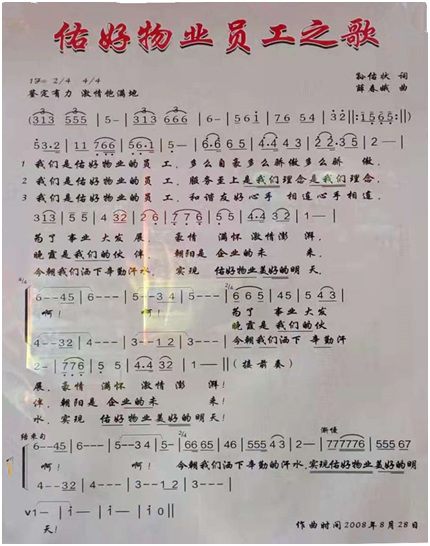 佑好物业员工之歌
1=  2/4  4/4
孙佑状 词
鉴定有力 激情饱满地
薛春娥 曲
(313 555 | 5- | 313 666 | 6- | 561 | 76 54 | 32 ||: 1555 :||)
53·2 | 11 766 | 56·1 | 5- | 6·6 65 | 4·4 43 | 2·2 35 | 5- |
1 我们是佑好物业的员工, 多么自豪多么骄傲多么骄 傲,
2 我们是佑好物业的员工, 服务至上是我们理念是我们理念,
3 我们是佑好物业的员工, 和谐友好心手 相连心手相连,
313 | 5 5 | 4 32 | 26 | 776 | 5 5 | 4·4 32 | 1- |
为了 事业 大发 展, 豪情 满怀 激情澎 湃,
晚霞是 我们的伙 伴, 朝阳是 企业的未 来,
今朝我们洒下辛勤汗水, 实现 佑好物业美好的明 天,
6--45 | 6--- | 5--34 | 5--- | 665 | 45 | 543 |
啊! 啊! 为了 事业 大发
晚霞 是我们的伙
今朝我们洒下 辛勤汗
4--32 | 4--- | 3--12 | 3---
2- | 776 | 5 5 | 4·4 32 | 1- || (接前奏)
展, 豪情 满怀 激情澎 湃!
伴, 朝阳 是 企业的未 来!
水, 实现 佑好物业美好的明天!
结束句
渐慢
6--45 | 6--- | 5--34 | 5- | 6665 | 46 | 555 43 | 2- | 777776 | 555 67
啊! 啊! 今朝我们洒下 辛勤的汗水, 实现佑好物业美好的明
4--32 | 4--- | 3--12 | 3-
v1- | i- | i- | i- | i0 ||
天!
作曲时间2008年8月28日